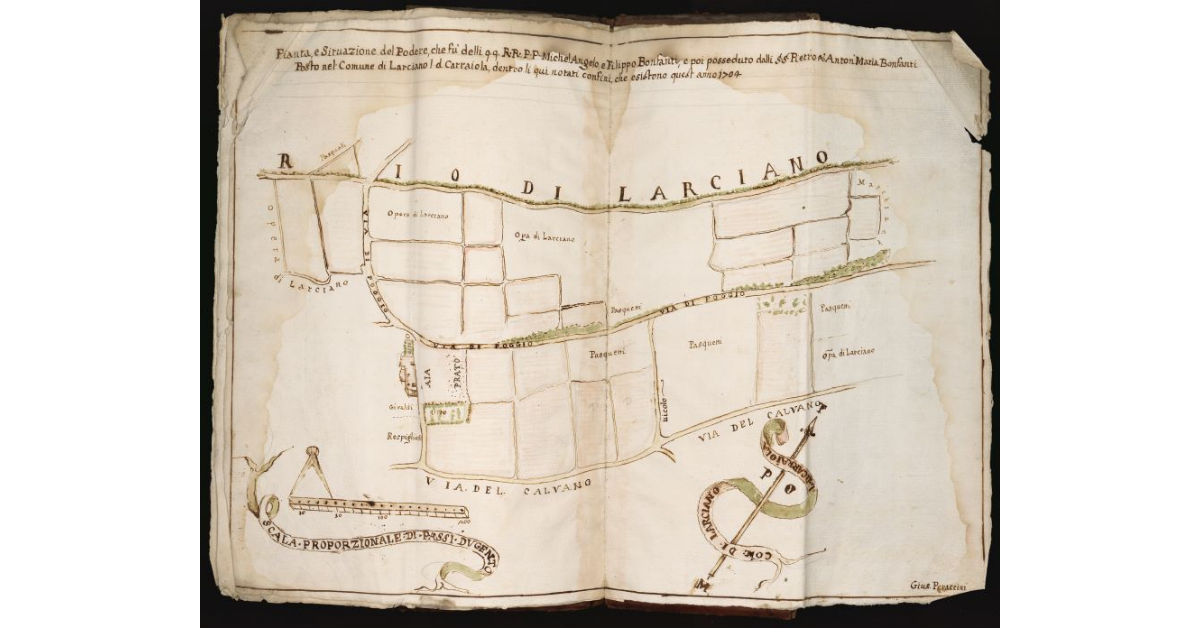 Pianta, e Situazione del Podere, che fù delli qq. RR: PP Michel Angelo e Filippo Bonfanti, e poi posseduto dalli SS. Pietro e Anton Maria Bonfanti
Posto nel Comune di Larciano l. d. Carraiola, dentro li qui notati confini, che esistono quest'anno 1704
RIO DI LARCIANO
Opera di Larciano
VIA DI POGGIO
Opera di Larciano
Opa di Larciano
Pasqueni
VIA DI POGGIO
VIA DI POGGIO
Pasqueni
Pasqueni
Pasqueni
Opa di Larciano
AIA
PRATO
Orto
Giraldi
Respigliosi
uicolo
VIA DEL CALVANO
VIA DEL CALVANO
10
50
100
200
SCALA PROPORZIONALE DI PASSI DUGENTO
T
P
O
M
COM: DI LARCIANO
L. CARRAIOLA
Gius. Peraccini